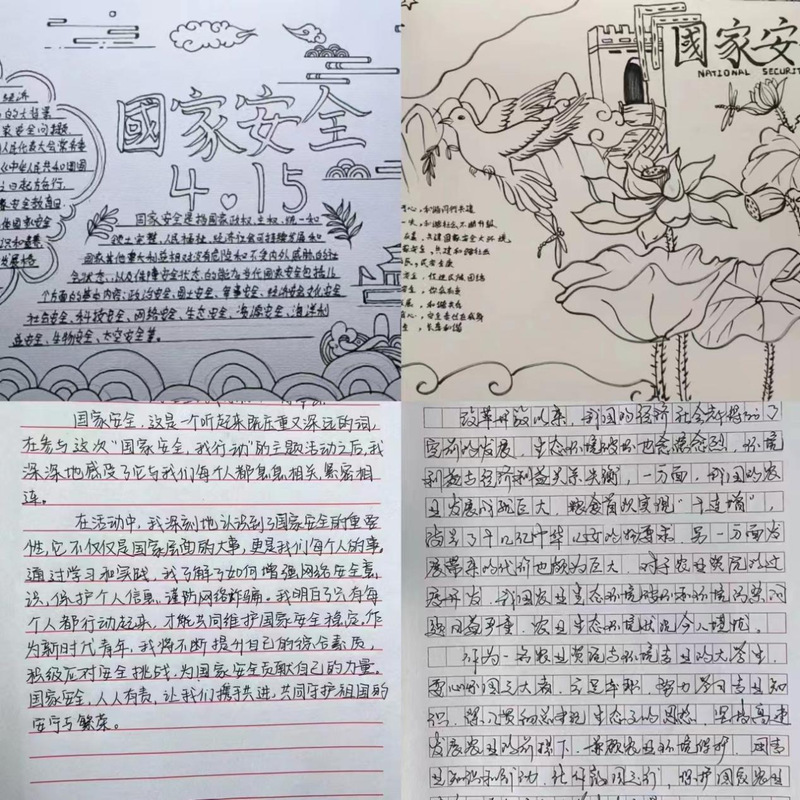 國家安全
4.15
经济
的大背景
家安全问题
人民代表大会常务委
《中华人民共和国国
之日起施行
安全教育日
国家安全是指国家政权、主权、统一和
领土完整、人民福祉、经济社会可持续发展和
国家其他重大利益相对没有危险和不受内外威胁的社
会状态,以及保障安全状态的能力当代国家安全包括几
个方面的基本内容:政治安全、国土安全、军事安全、经济安全文化安全
社会安全、科技安全、网络安全、生态安全、资源安全、海洋利
益安全、生物安全、太空安全等。
國家安
NATIONAL SECURIT
共建国家安全大环境
共建和谐社会
安全,促进民族团结
安全,你我有责
和谐共存
安全责任在我身
长享和谐
国家安全,这是一个听起来既庄重又深远的词,
在参与这次“国家安全,我行动”的主题活动之后,我
深深地感受了它与我们每个人都息息相关,紧密相
连。
在活动中,我深刻地认识到了国家安全的重要
性,它不仅仅是国家层面的大事,更是我们每个人的事。
通过学习和实践,我了解了如何增强网络安全意
识,保护个人信息,谨防网络诈骗。我明白了只有每
个人都行动起来,才能共同维护国家安全稳定。作
为新时代青年,我将不断提升自己的综合素质,
积极应对安全挑战,为国家安全贡献自己的力量。
国家安全,人人有责,让我们携手共进,共同守护祖国的
安宁与繁荣。
改革开放以来,我国的经济社会都得到了
空前的发展,生态环境破坏也愈演愈烈,环境
利益与经济利益关系失衡,一方面,我国的农
业发展成就巨大,粮食首次实现“十连增”,
满足了十几亿中华儿女的物质需求,另一方面发
展带来的代价也颇为巨大,对于农业资源的过
度开发,我国农业生态环境破坏和环境污染问
题日益严重,农业生态环境状况令人堪忧。
作为一名农业资源与环境专业的大学生,
要心怀国之大者,立足本职,努力学习专业知
识,深入贯彻总书记生态文明思想,坚持高速
发展农业的前提下,兼顾农业环境保护,用专
业知识和行动,